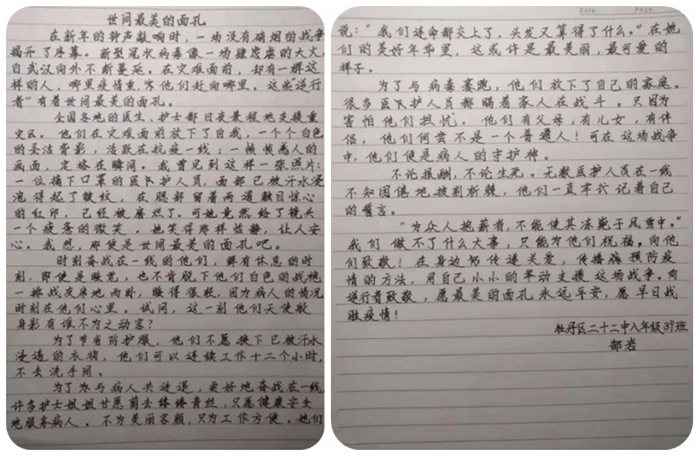 世间最美的面孔
在新年的钟声敲响时，一场没有硝烟的战争
揭开了序幕。新型冠状病毒像一场肆虐的大火，
自武汉向外不断蔓延。在灾难面前，却有一群这
样的人，哪里疫情重，他们赶向哪里，这些逆行
者"有着世间最美的面孔。
全国各地的医生、护士都日夜兼程地支援重
灾区。他们在灾难面前放下了自我，一个个白色
的圣洁背影，活跃在抗疫一线；一帧帧感人的
画面，定格在瞬间。我曾见到这样一张照片：
一位摘下口罩的医护人员，面部已被汗水浸
泡得起了皱纹，在腮部留着两道触目惊心
的红印，已经被磨烂了。可她竟然给了镜头
一个疲惫的微笑。她笑得那样恬静，让人安
心。我想，那便是世间最美的面孔吧。
时刻奋战在一线的他们，鲜有休息的时
刻，即使是睡觉，也不肯脱下他们白色的战袍
一换战友席地而卧，睡得很轻，因为病人的情况
时刻在他们心里。试问，这一刻他们天使般
身影有谁不为之动容？
为了节省防护服，他们不愿换下已被汗水
浸透的衣物，他们可以连续工作十二个小时，
不去洗手间。
为了与病人共进退，更好地奋战在一线
许多护士姐姐甘愿剪去缕缕青丝，只愿健康安全
地服务病人。不为美丽容颜，只为工作方便。她们
说："我们连命都交上了，头发又算得了什么。"在她
们的美好年华里，这或许是最美丽，最可爱的
样子。
为了与病毒赛跑，他们放下了自己的家庭。
很多医护人员都瞒着家人在战斗。只因为
害怕他们担忧。他们有父母，有儿女，有伴
侣，他们何尝不是一个普通人！可在这场战争
中，他们便是病人的守护神。
不论报酬，不论生死。无数医护人员在一线
不知困倦地披荆斩棘，他们一直牢记着自己
的誓言。
"为众人抱薪者，不能使其冻毙于风雪中。"
我们做不了什么大事，只能为他们祝福，向他
们致敬！在身边多传递关爱，传播病预防疫
情的方法，用自己小小的举动支援这场战争。向
逆行者致敬，愿最美的面孔永远平安，愿早日战
胜疫情！
牡丹区二十二中八年级39班
郜岩